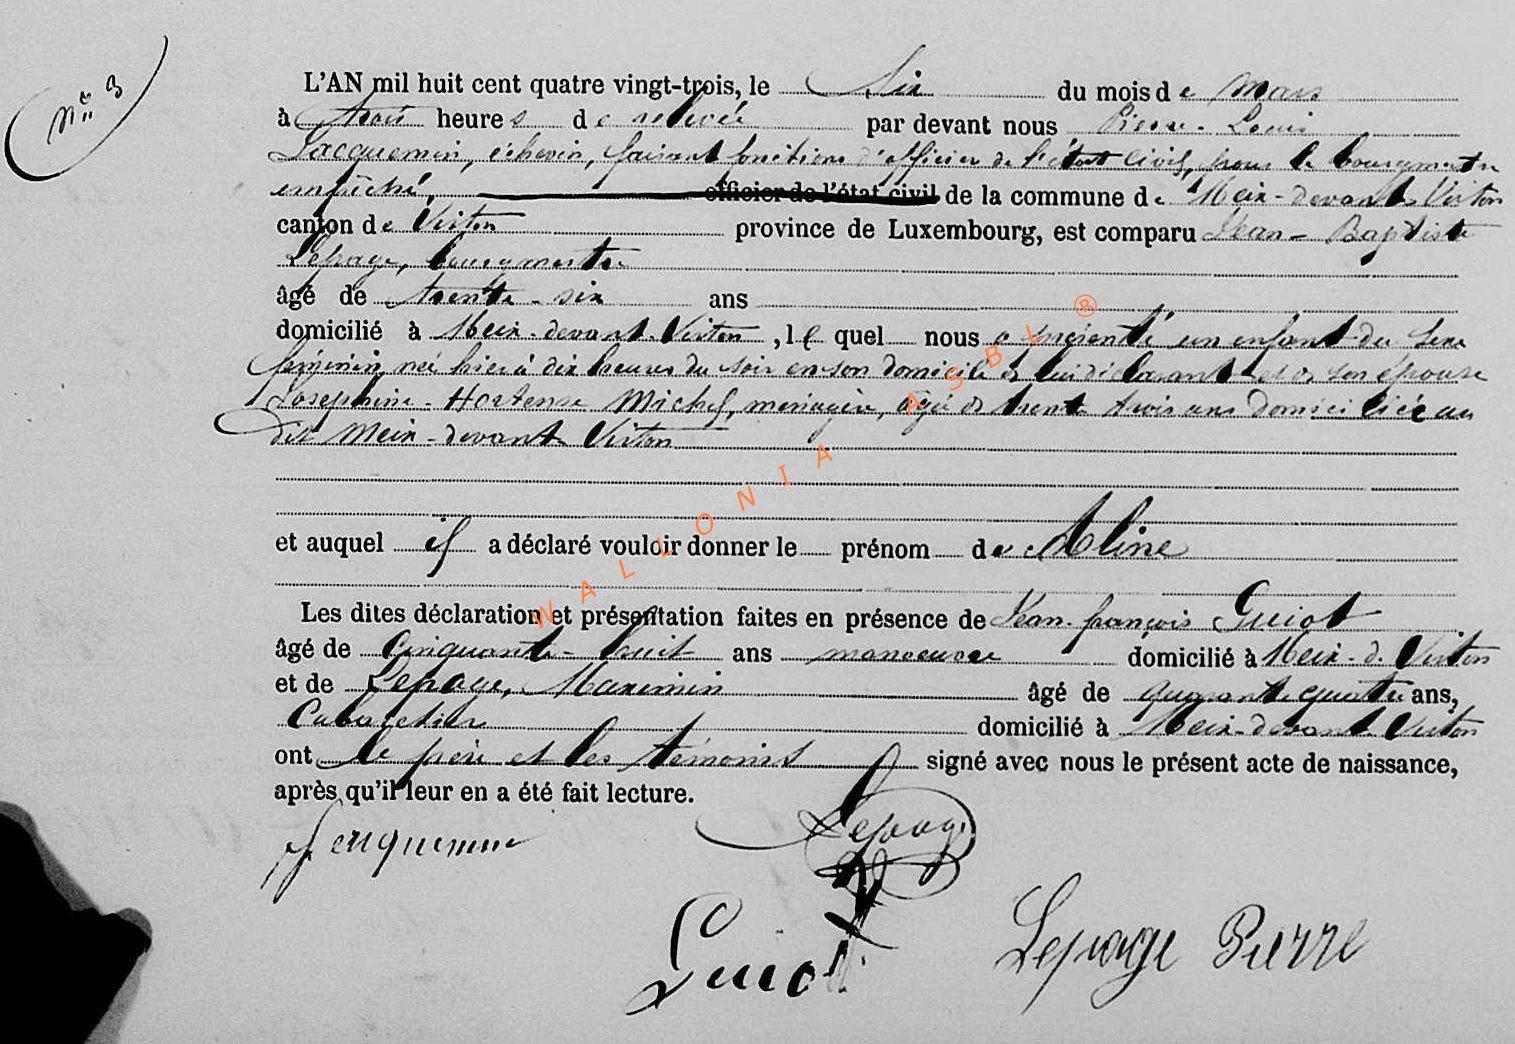 N° 3
L'AN mil huit cent quatre vingt-trois, le Six du mois de Mars
à trois heures de relevée par devant nous Pierre-Louis
Jacquemin, échevin, faisant fonctions d'officier de l'état civil, pour le bourgmestre
empêché, officier de l'état civil de la commune de Meix-devant-Virton
canton de Virton province de Luxembourg, est comparu Jean-Baptiste
Lepage, bourgmestre
âgé de trente-six ans
domicilié à Meix-devant-Virton, lequel nous a présenté un enfant du sexe
féminin, né hier à dix heures du soir en son domicile de lui déclarant et de son épouse
Joséphine-Hortense Michel, ménagère, âgée de trente trois ans domiciliée au
dit Meix-devant Virton
et auquel il a déclaré vouloir donner le prénom de Aline
Les dites déclaration et présentation faites en présence de Jean-françois Guiot
âgé de cinquante-huit ans manoeuvre domicilié à Meix-d-Virton
et de Lepage, Maximin âgé de quarante quatre ans,
Cabaretier domicilié à Meix-devant Virton
ont le père et les témoins signé avec nous le présent acte de naissance,
après qu'il leur en a été fait lecture.
Jacquemin Lepage
Guiot Lepage Pierre
WALLONIA ASBL ®